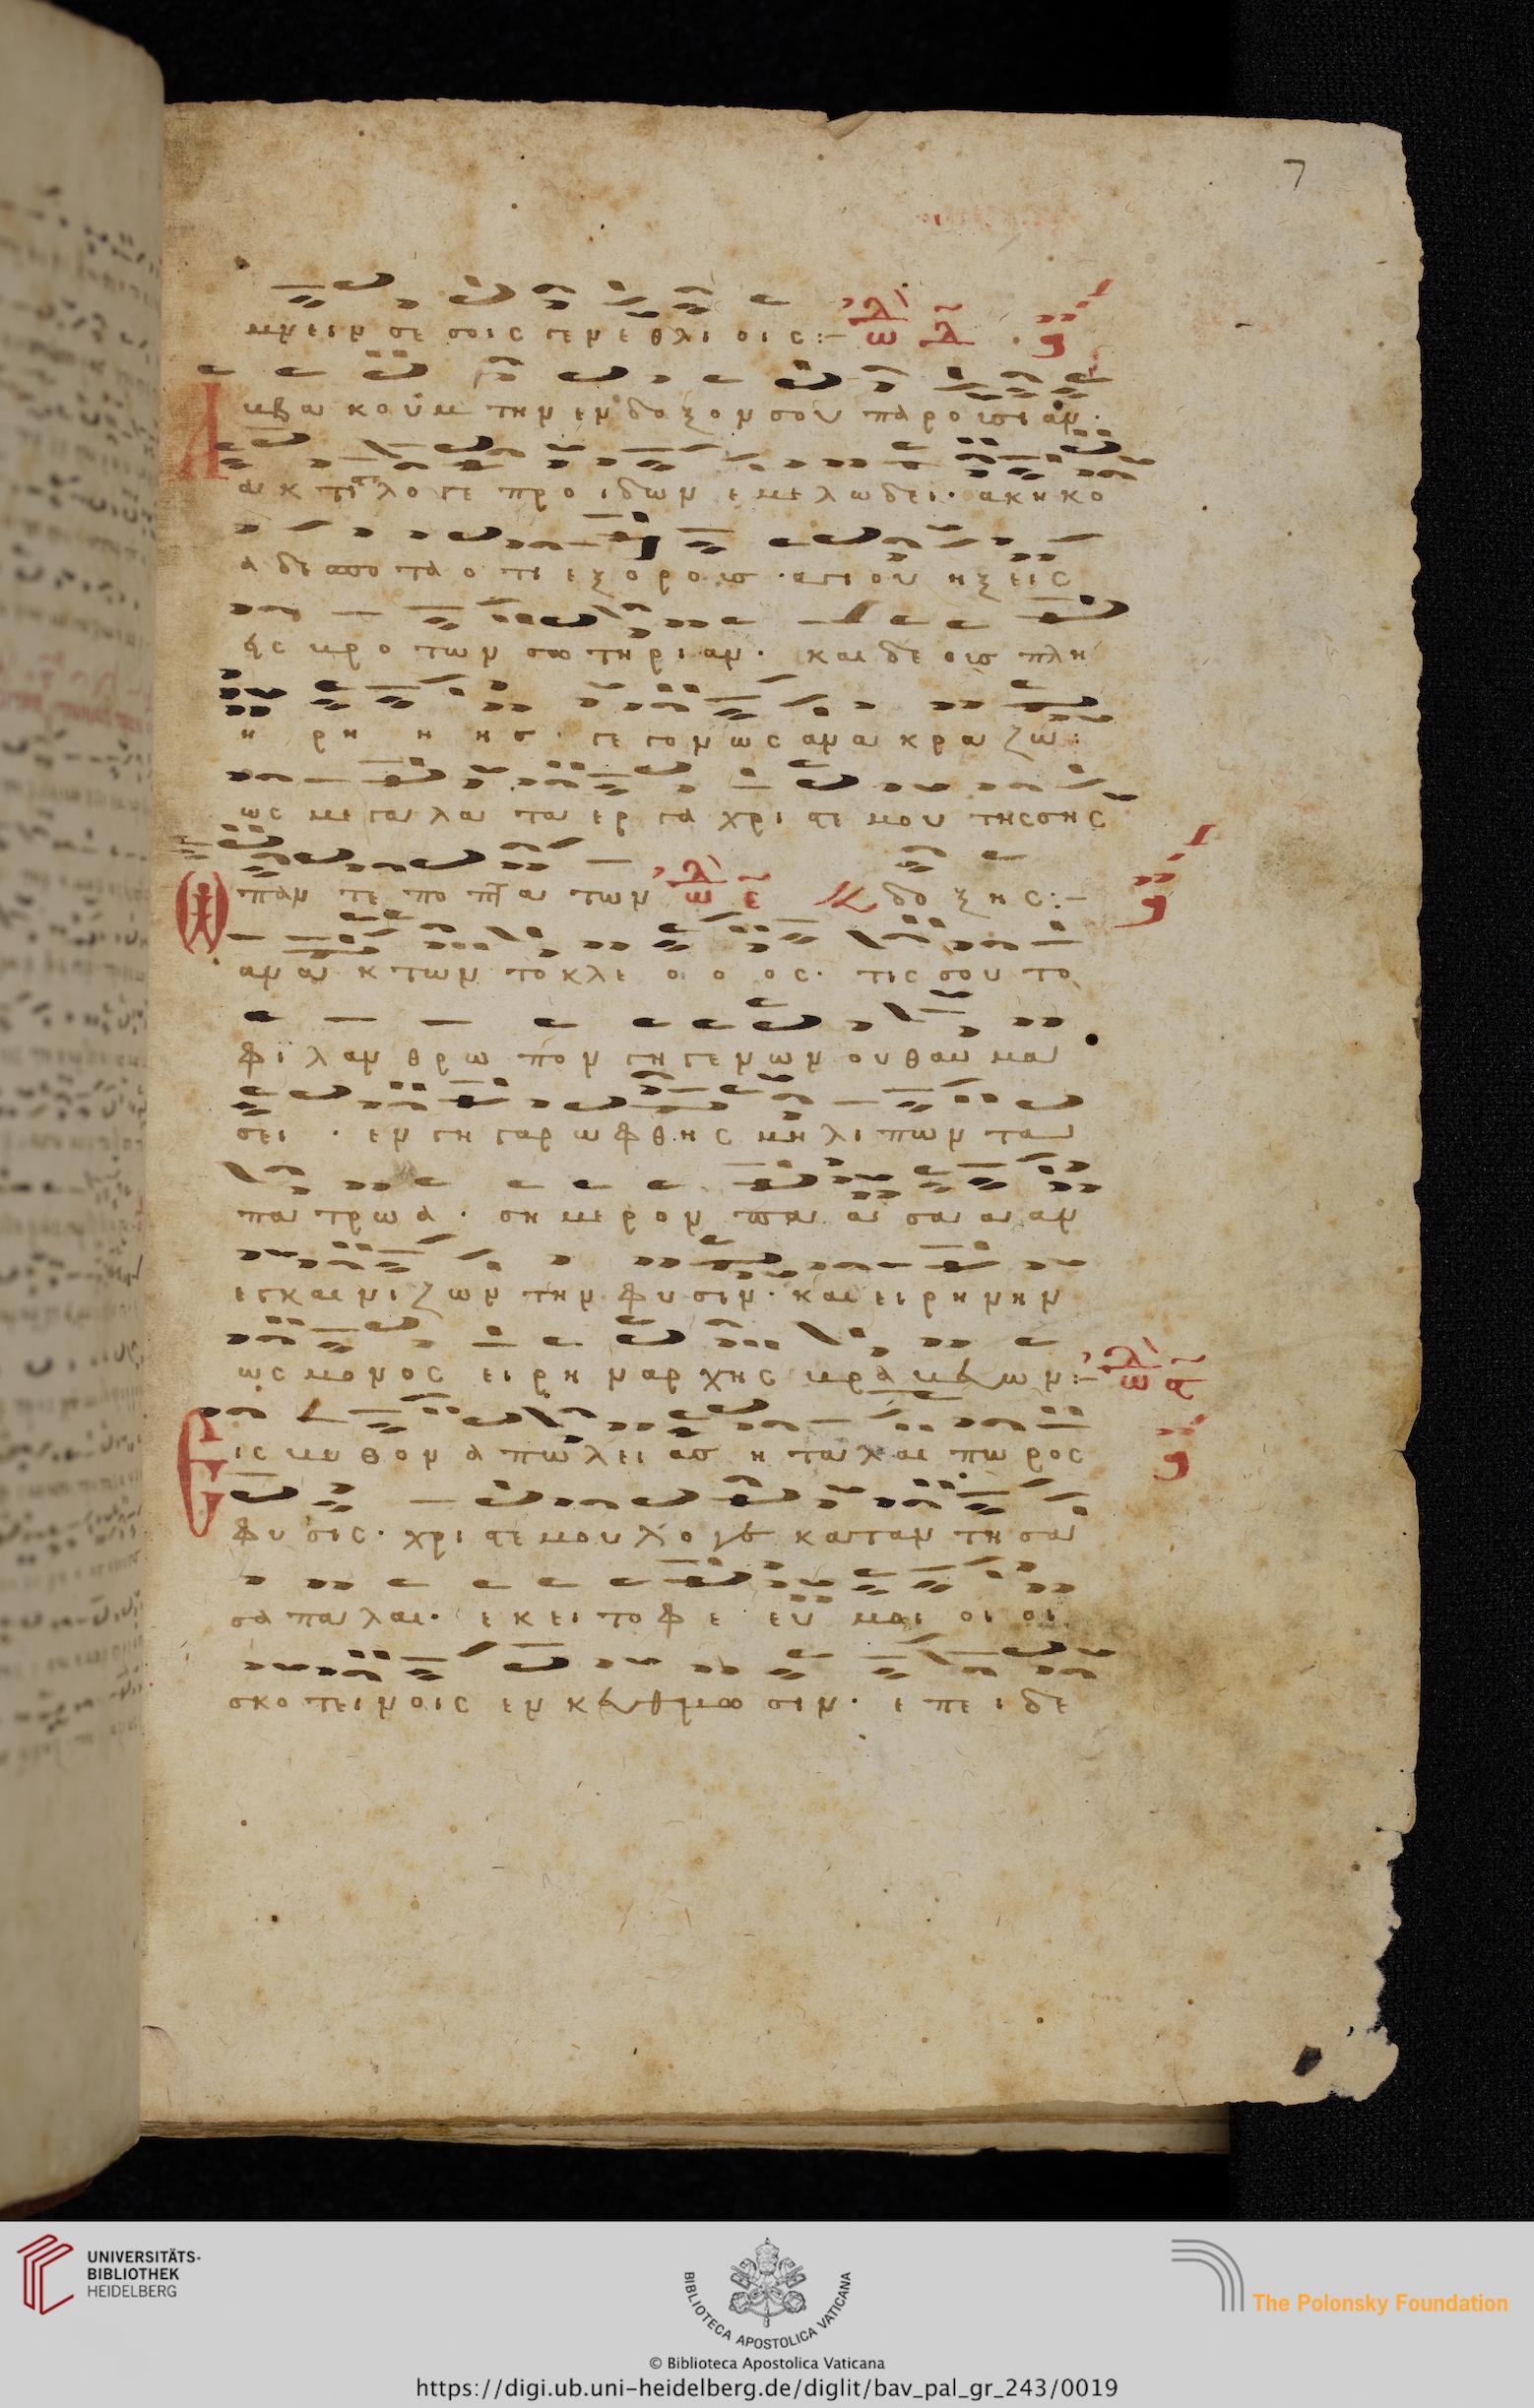 7
μνειν σε σοις γενεθλι οις:- ωδ δ
μβα κουμ την ενδοξον σου παρουσιαν·
ακ τυλογε προ ιδων εμελωδει· ακηκο
α δεσποτα ο τι εξ ορους · αγιου ηξεις
εις βροτων σωτηριαν· και δεους πλη
η ρη η ης · γεγονως ανα κρα ζω:
ως μεγαλα τα ερ γα χρι στε μου της σης
παν τε πο πτα των ωδ ε δο ξης:-
ανακτων το κλε ο ο ος· τις σου το
φιλανθρωπον γηγενων ου θαυμα
σει · εν γη γαρ ωφθης μη λιπων τα
πατρωα · σημερον πα α σα α αν
εγκαινιζων την φυσιν· και ειρηνην
ως μονος ειρηναρχης βραβευων:- ωδ α
ις βυθον απωλειας η ταλαι πωρος
φυσις· χριστε μου λογε καταντησα
σα παλαι· εκειτο φε ευ μοι οι οι
σκοτεινοις εν κευθμωσιν· επειδε
UNIVERSITÄTS-
BIBLIOTHEK
HEIDELBERG
BIBLIOTECA APOSTOLICA VATICANA
The Polonsky Foundation
© Biblioteca Apostolica Vaticana
https://digi.ub.uni-heidelberg.de/diglit/bav_pal_gr_243/0019